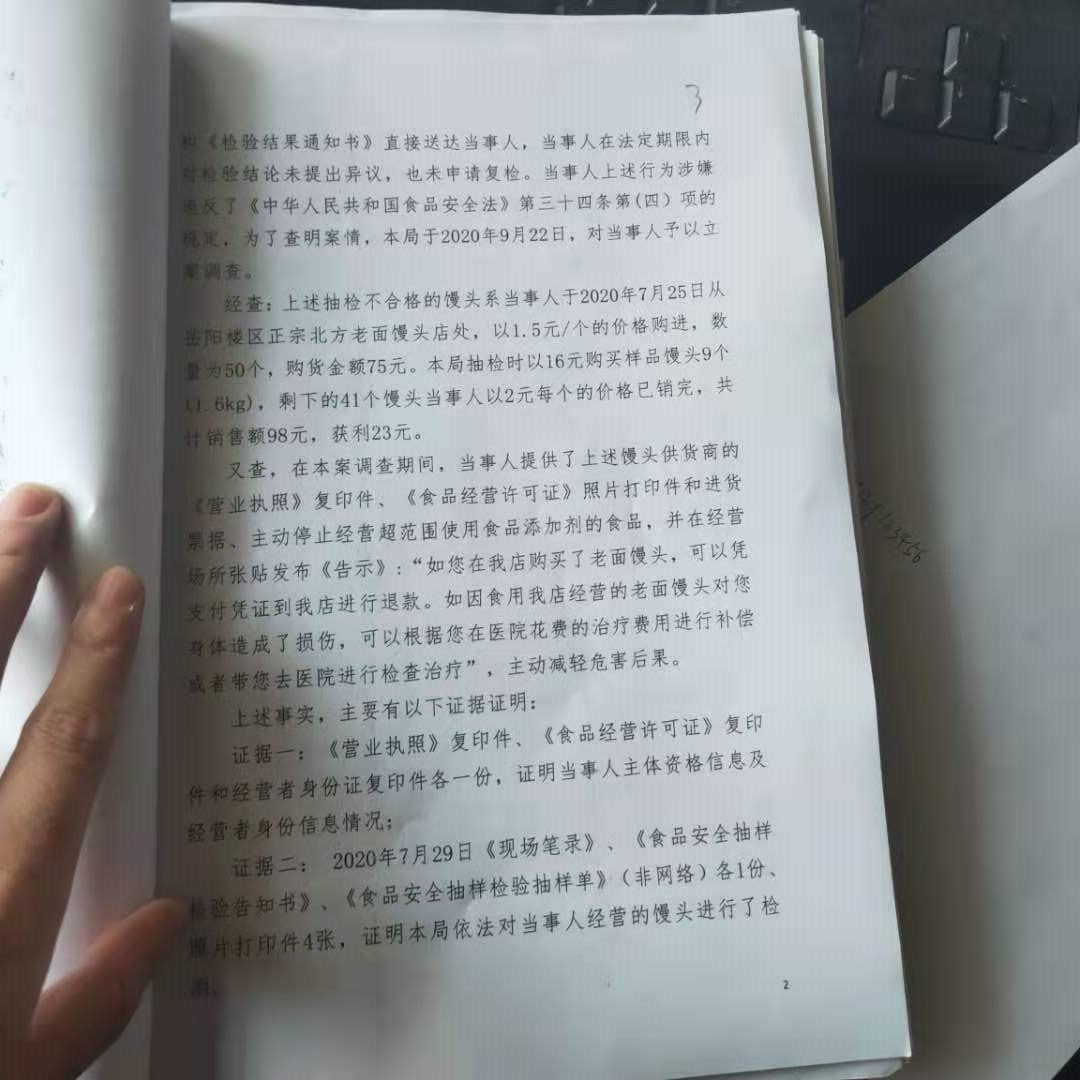 3
《检验结果通知书》直接送达当事人，当事人在法定期限内
检验结论未提出异议，也未申请复检。当事人上述行为涉嫌
违反了《中华人民共和国食品安全法》第三十四条第(四）项的
规定，为了查明案情，本局于2020年9月22日，对当事人予以立
案调查。
经查：上述抽检不合格的馒头系当事人于2020年7月25日从
岳阳楼区正宗北方老面馒头店处，以1.5元/个的价格购进，数
量为50个，购货金额75元。本局抽检时以16元购买样品馒头9个
(1.6kg)，剩下的41个馒头当事人以2元每个的价格已销完，共
计销售额98元，获利23元。
又查，在本案调查期间，当事人提供了上述馒头供货商的
《营业执照》复印件、《食品经营许可证》照片打印件和进货
票据、主动停止经营超范围使用食品添加剂的食品，并在经营
场所张贴发布《告示》:“如您在我店购买了老面馒头，可以凭
支付凭证到我店进行退款。如因食用我店经营的老面馒头对您
身体造成了损伤，可以根据您在医院花费的治疗费用进行补偿
或者带您去医院进行检查治疗”，主动减轻危害后果。
上述事实，主要有以下证据证明：
证据一：《营业执照》复印件、《食品经营许可证》复印
件和经营者身份证复印件各一份，证明当事人主体资格信息及
经营者身份信息情况；
证据二： 2020年7月29日《现场笔录》、《食品安全抽样
检验告知书》、《食品安全抽样检验抽样单》（非网络）各1份、
照片打印件4张，证明本局依法对当事人经营的馒头进行了检
2